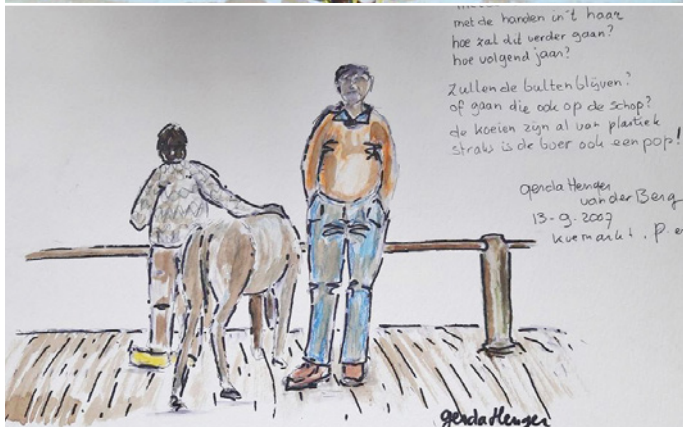 met de handen in't haar
hoe zal dit verder gaan?
hoe volgend jaar?
zullen de bulten blijven?
of gaan die ook op de schop?
de koeien zijn al van plastiek
straks is de boer ook een pop!
gerda Henger
van der Berg
13-9-2007
koemarkt. P.
gerda Henger